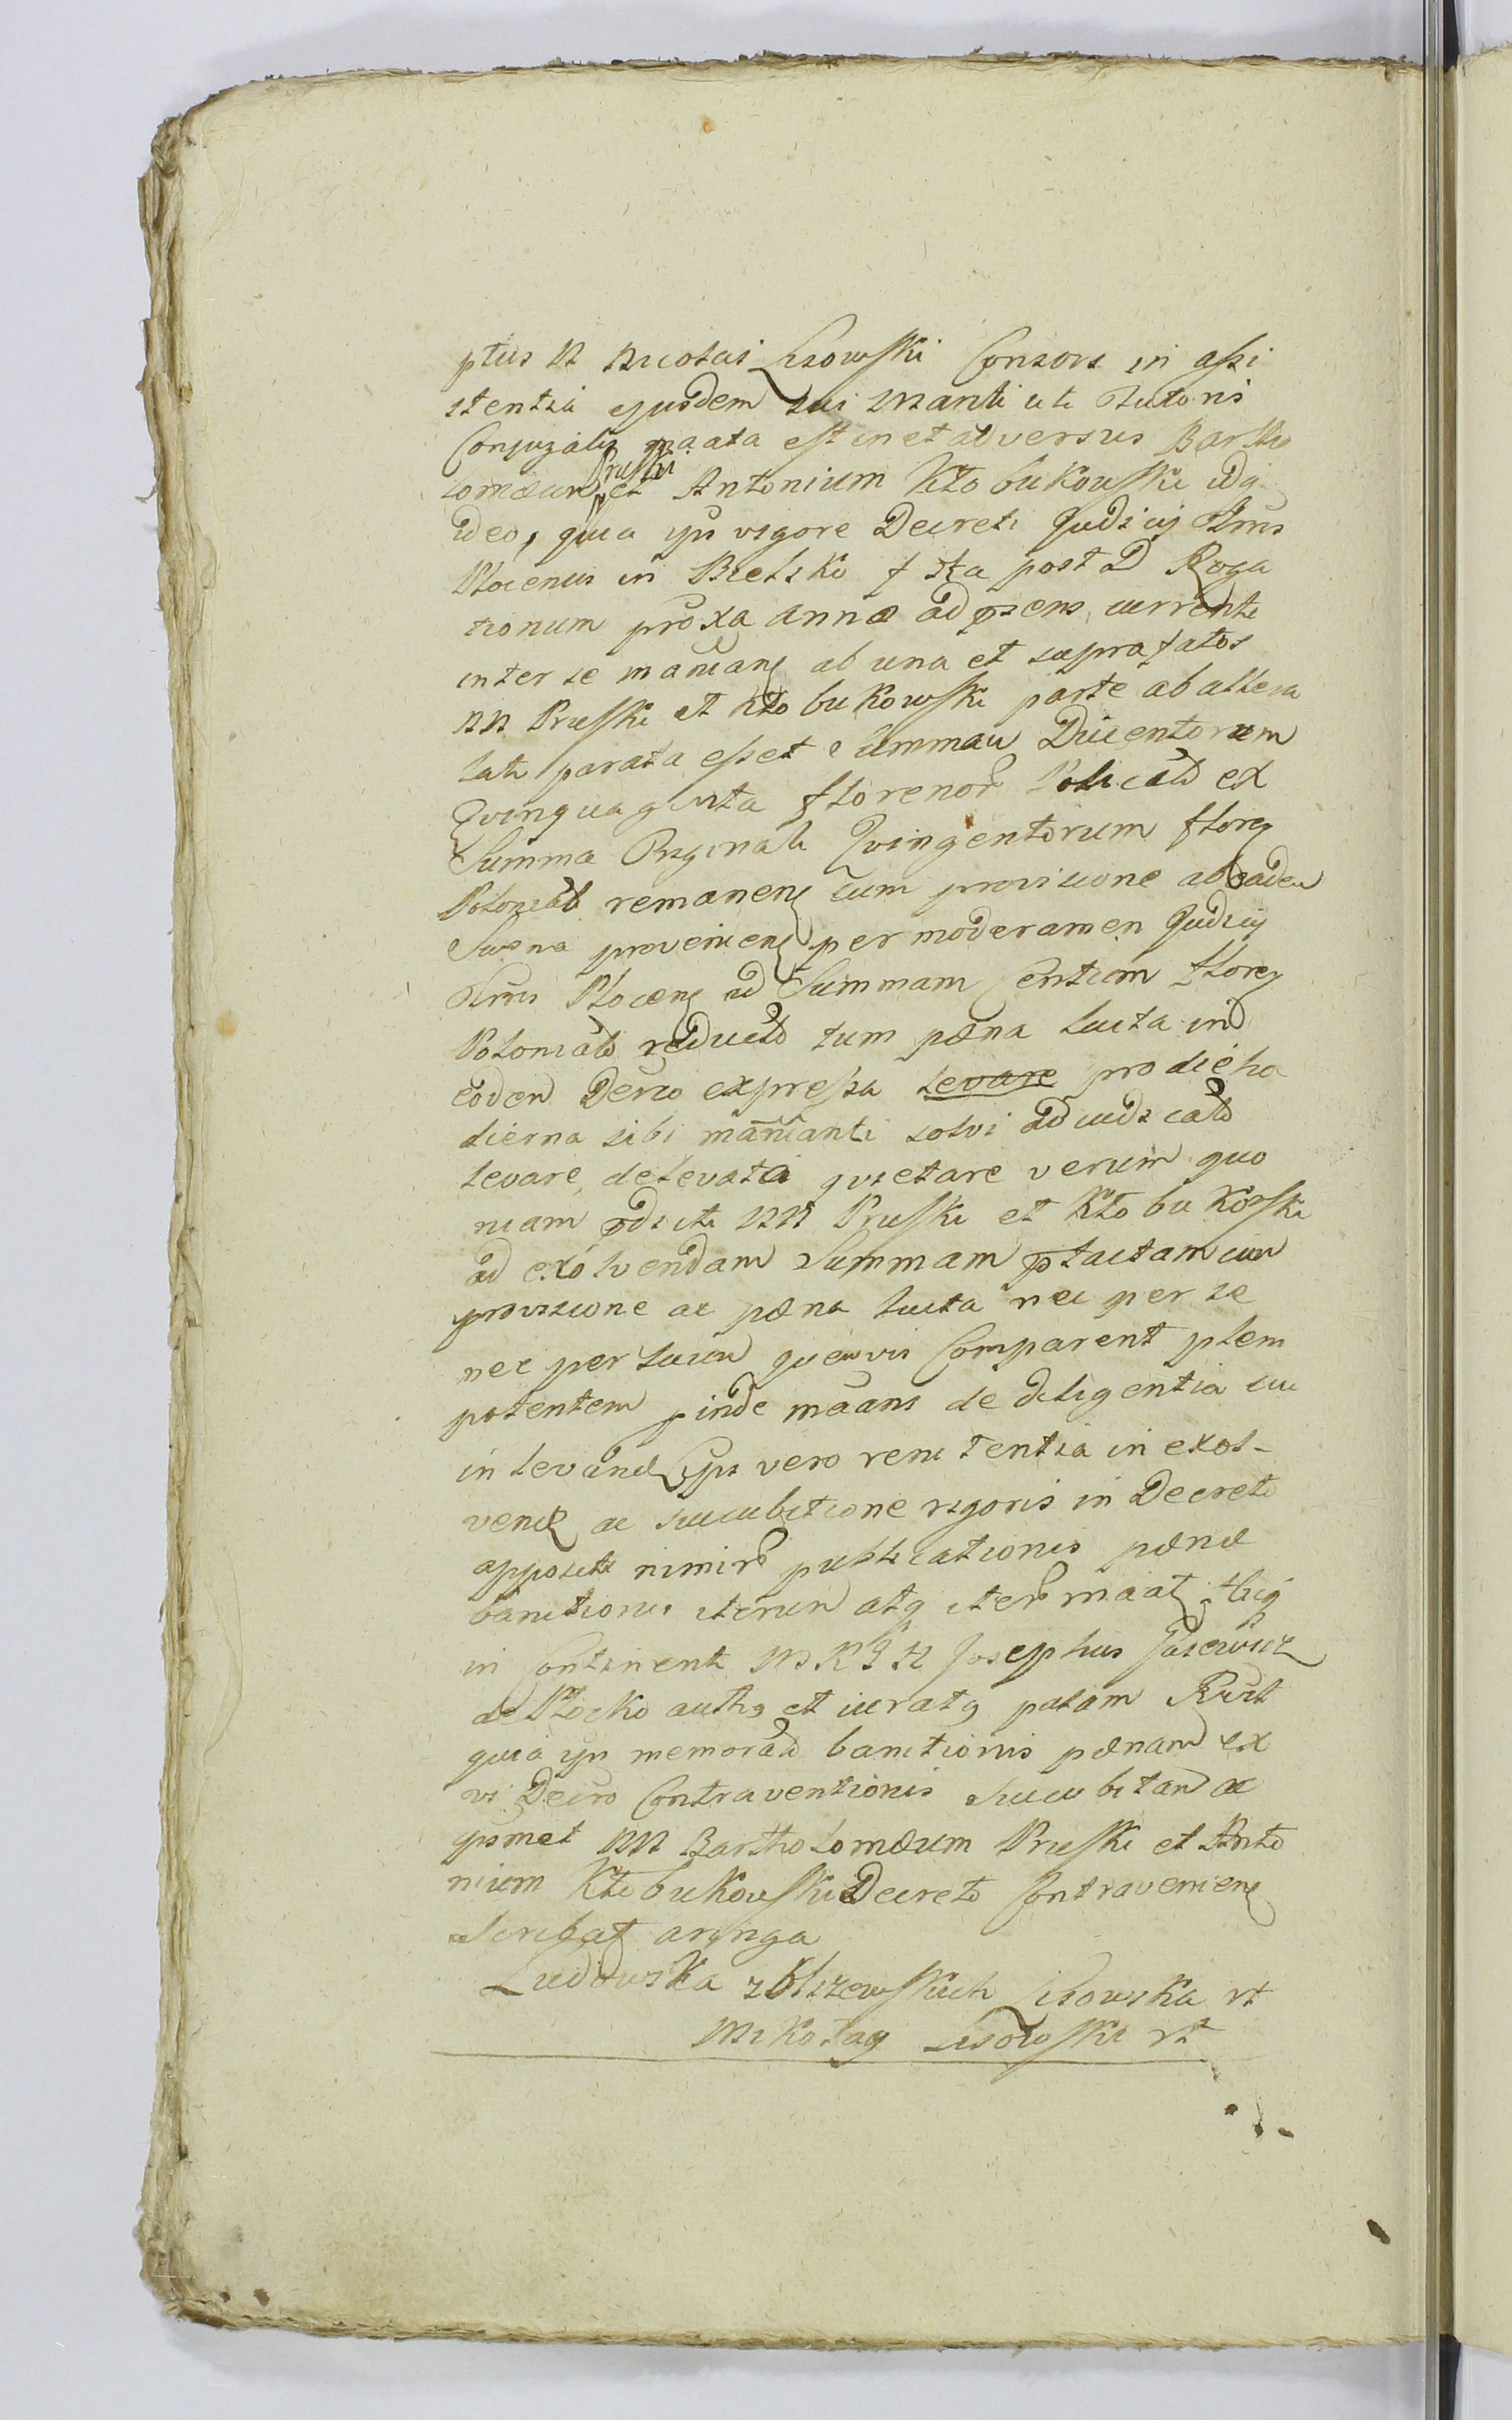 ptus N Nicolai Lisowski Consors in assi
stentia ejusdem sui Mariti uti Tutoris
Conjugalis maata est in et adversus Bartho
lomæum Pruski et Antonium Kłobukowski idq
ideo, quia ipsi vigore Decreti Judicij Trris
Plocensis in Bielsko f 3tia post D Roga
tionum proxa anno ad præsens currenti
inter se manean ab una et suprafatos
NN Pruski et Kłobukowski parte ab altera
lati parata esset Summam Ducentorum
Quinquaginta florenor Policał ex
Summa Originali Quingentorum floren
Polonicał remanen cum provisione ab eadem
Summa provenien per moderamen Judicij
Trris Plocen ad Summam Centum floren
Polonicał reducto tum pœna lucta in
eodem Decreo expressa levare pro die ho
dierna sibi maanti solvi adjudicato
levare, de levata quietare verum quo
niam pdicti NN Pruski et Kłobukowski
ad exolvendam Summam ptactam cum
provisione ac pœna lucta nec per se
nec per suum quemvis Comparent plem
potentem pinde maans de diligentia sui
in levand Ipsi vero renitentia in exol-
vend ac succubitione rigoris in Decreto
appositi nimir publicationis pœnæ
banitionis iterum atq iter maat hicq
in Continenti M R G H Josephus Jasiewicz
de Płocko autħs et juratq palam Rcit
quia ipsi memorato banitionis pœnam ex
vi Decro Contraventionis succubitan ac
ipsmet NN Bartholomæum Pruski et Anto
nium Kłobukowski Decreto Contravenien
scribat arynga
Ludowika z Blizewskich Lisowska rt
Mikołay Lisowski rt